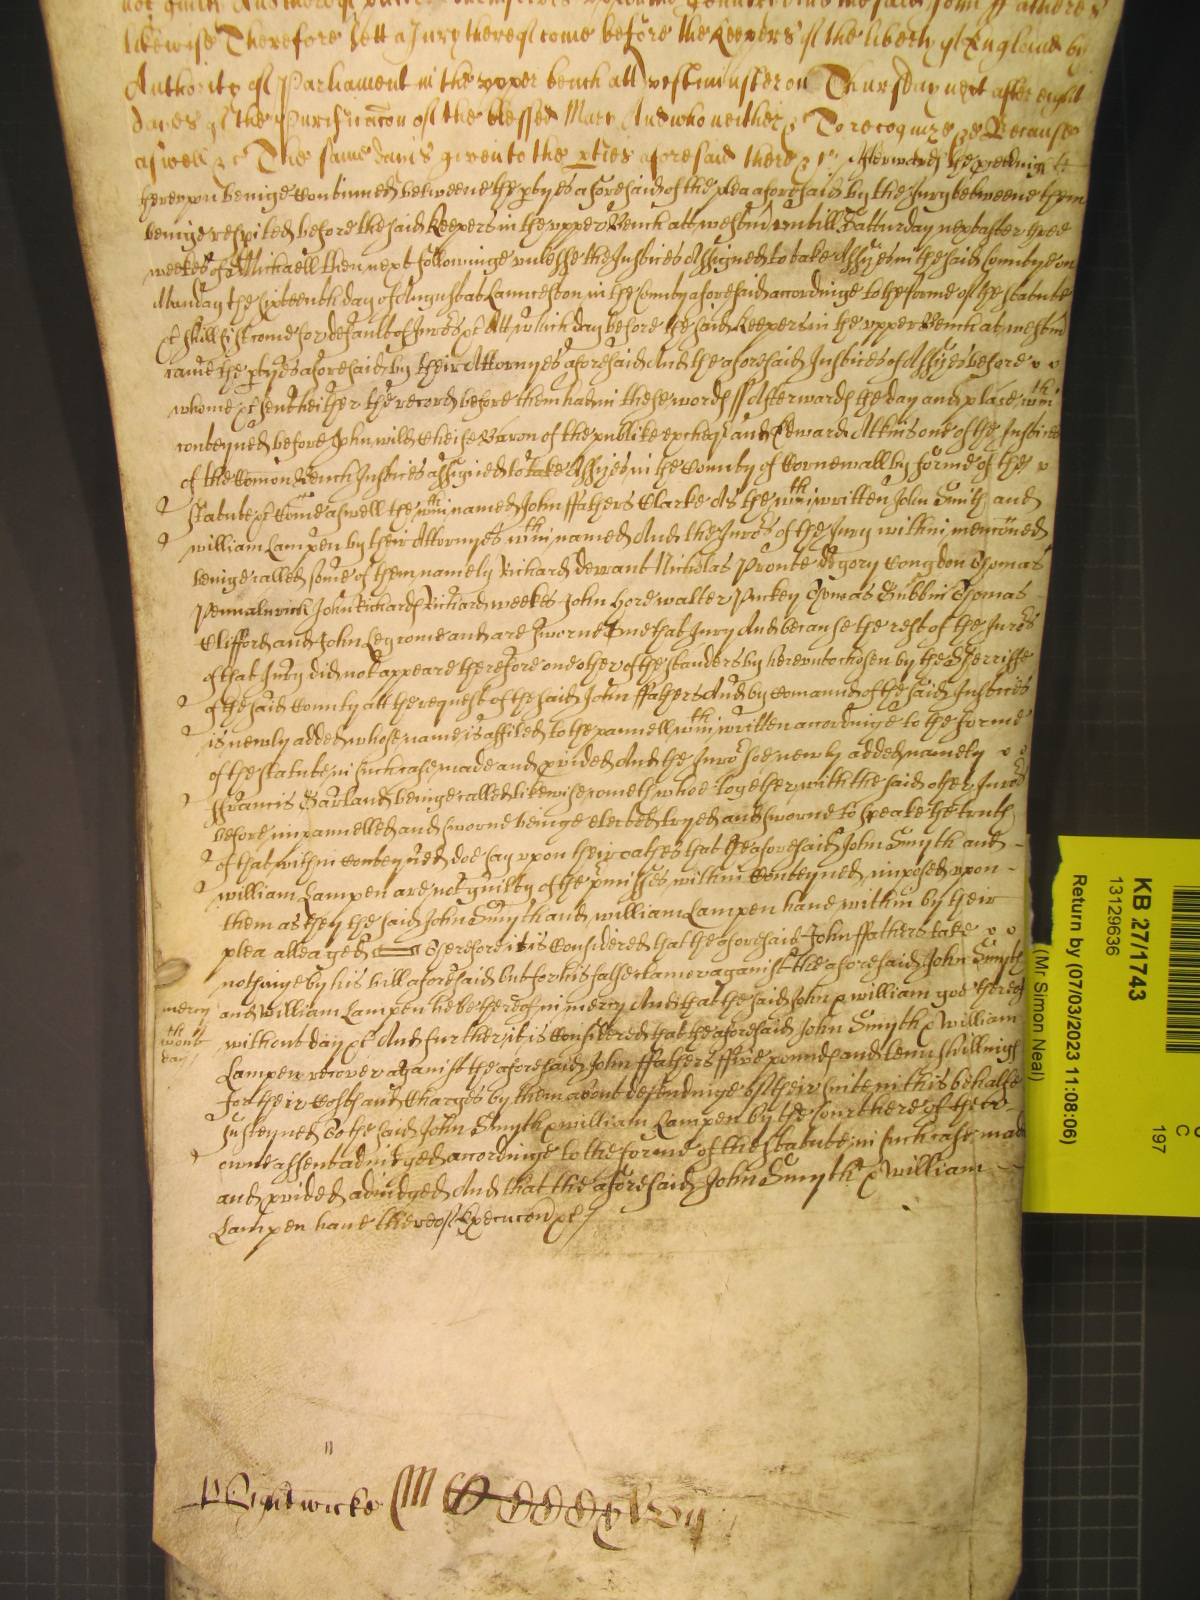 not guilty And thereof putt themselves upon the Countrie And the said John ffathers
likewise Therefore lett a Jury thereof come before the Keepers of the liberty of England by
Authority of Parliament in the upper bench att Westminster on Thursday next after eight
dayes of the Purificacon of the blessed Mary And who neither &c To recognize &c Because
aswell &c The same day is given to the pties aforesaid there &c Afterwards the pceedings
thereupon beinge Continued betweene the ptyes aforesaid of the plea aforesaid by the Jury betweene them
beinge respited before the said Keepers in the upper Bench att westmr untill Satturday next after three
weekes of St Michaell then next followinge unlesse the Justices Assigned to take Assizes in the said County on
Munday the sixteenth day of August at Launceston in the County aforesaid accordinge to the forme of the statute
&c shall first come for default of Jurors &c Att which day before the said Keepers in the upper Bench at westmr
came the ptyes aforesaid by their Attornyes aforesaid And the aforesaid Justices of Assizes before
whome &c sent hether the record before them had in these words ss Afterwards the day and place within
conteyned before John wilde cheife Baron of the publike excheqr and Edward Atkins one of the Justices
of the Comon Bench Justices assigned to take Assizes in the County of Cornewall by forme of the
statute &c Come aswell the within named John ffathers Clarke As the within written John Smith and
william Lampen by their Attornyes within named And the Jurors of the Jury within menconed
beinge called some of them namely Richard dewant Nicholas Pronte Degory Congdon Thomas
Pennalurick John Richards Richard weekes John Hore walter Puckey Thomas Gubbin Thomas
Clifford and John Legrome and are sworne upon that Jury And because the rest of the Jurors
of that Jury did not appeare therefore one other of the standers by hereunto chosen by the Sherriffe
of the said County att the request of the said John ffathers And by Comannd of the said Justices
is newly added whose name is affiled to the pannell within written accordinge to the forme
of the statute in such case made and pvided And the Juror soe newly added namely
ffrancis Garland beinge called likewise cometh whoe together with the said other Jurors
before impannelled and sworne beinge elected tryed and sworne to speake the truth
of that within Conteyned doe say upon their oathes that the aforesaid John Smyth and
william Lampen are not guilty of the pmisses within Conteyned imposed upon
them as they the said John Smyth and william Lampen have within by their
plea alleaged Therefore it is Considered that the aforesaid John ffathers take
nothinge by his bill aforesaid but for his false clamer against the aforesaid John Smyth
and William Lampen hee be thereof in mercy And that the said John & william goe thereof
without day &c And further it is Considered that the aforesaid John Smyth & William
Lampen recover against the aforesaid John ffathers ffive pounds and tenn shillings
for their Costs and Charges by them about defendinge of their suite in this behalfe
susteyned To the said John Smyth & william Lampen by the Court here of their
owne assent adiudged accordinge to the forme of the statute in such case made
and pvided adiudged And that the aforesaid John Smyth & William
Lampen have thereof Execucon &c
mercy
wthout
day
KB 27/1743
13129636
Return by (07/03/2023 11:08:06)
(Mr Simon Neal)
C
197